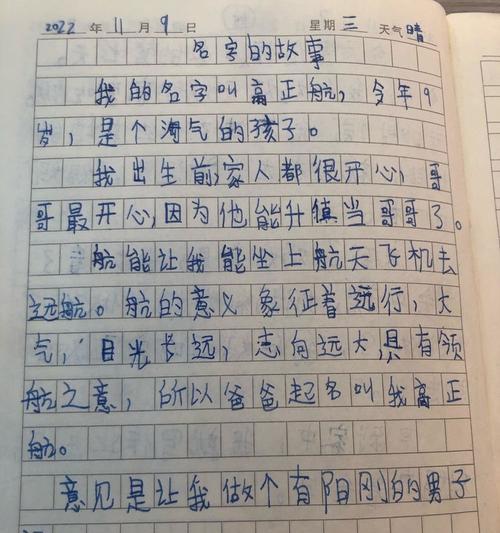 2022年11月9日 星期三 天气晴
名字的故事
我的名字叫高正航，今年9
岁，是个淘气的孩子。
我出生前，家人都很开心，哥
哥最开心，因为他能升镇当哥哥了。
航能让我能坐上航天飞机去
远航。航的意义象征着远行，大
气，目光长远，志向远大具有领
航之意，所以爸爸起名叫我高正
航。
意见是让我做个有阳刚的男子